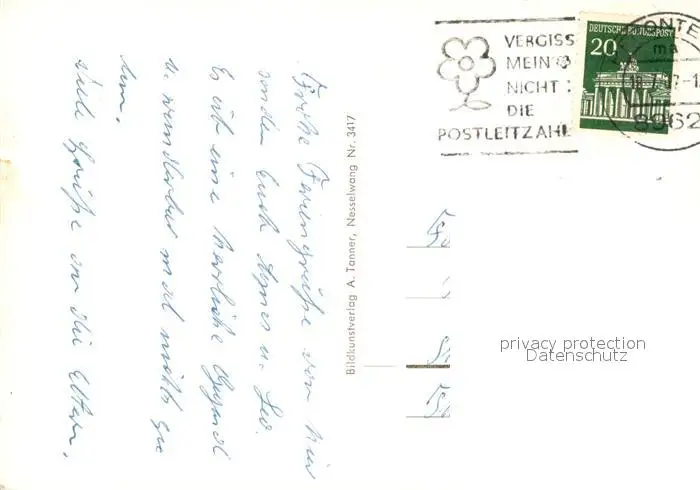 VERGISS
MEIN
NICHT
DIE
POSTLEITZAHL
DEUTSCHE BUNDESPOST
20
8962
Frohe Feriengrüße von hier
senden Euch Agnes u. Leo.
Es ist eine herrliche Gegend
u. wunderbar mal nichts zu
tun.
Viele Grüße an die Eltern.
Bildkunstverlag A. Tanner, Nesselwang Nr. 3417
privacy protection
Datenschutz